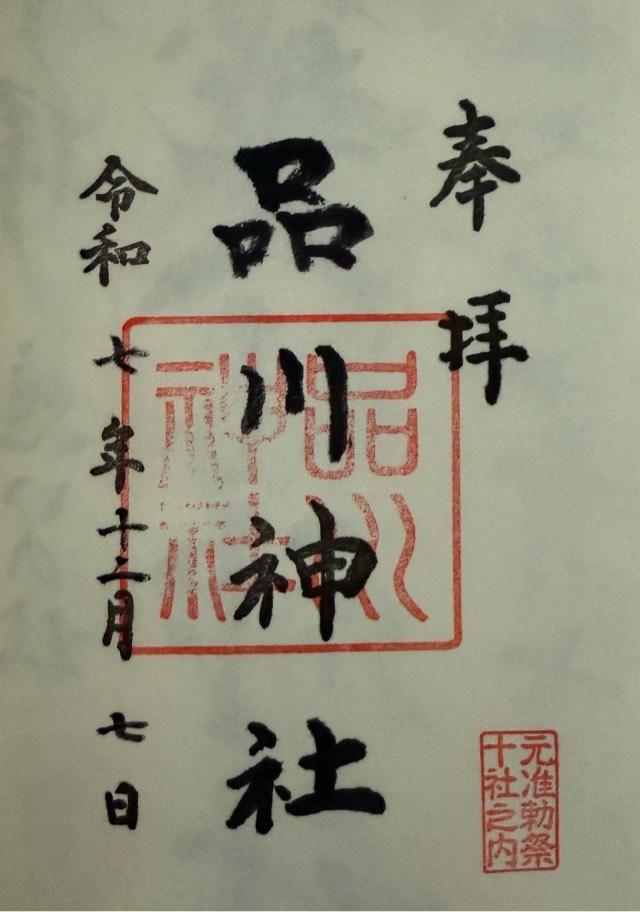 奉拝
品川神社
令和七年十二月七日
品川
神社
元准勅祭
十社之内